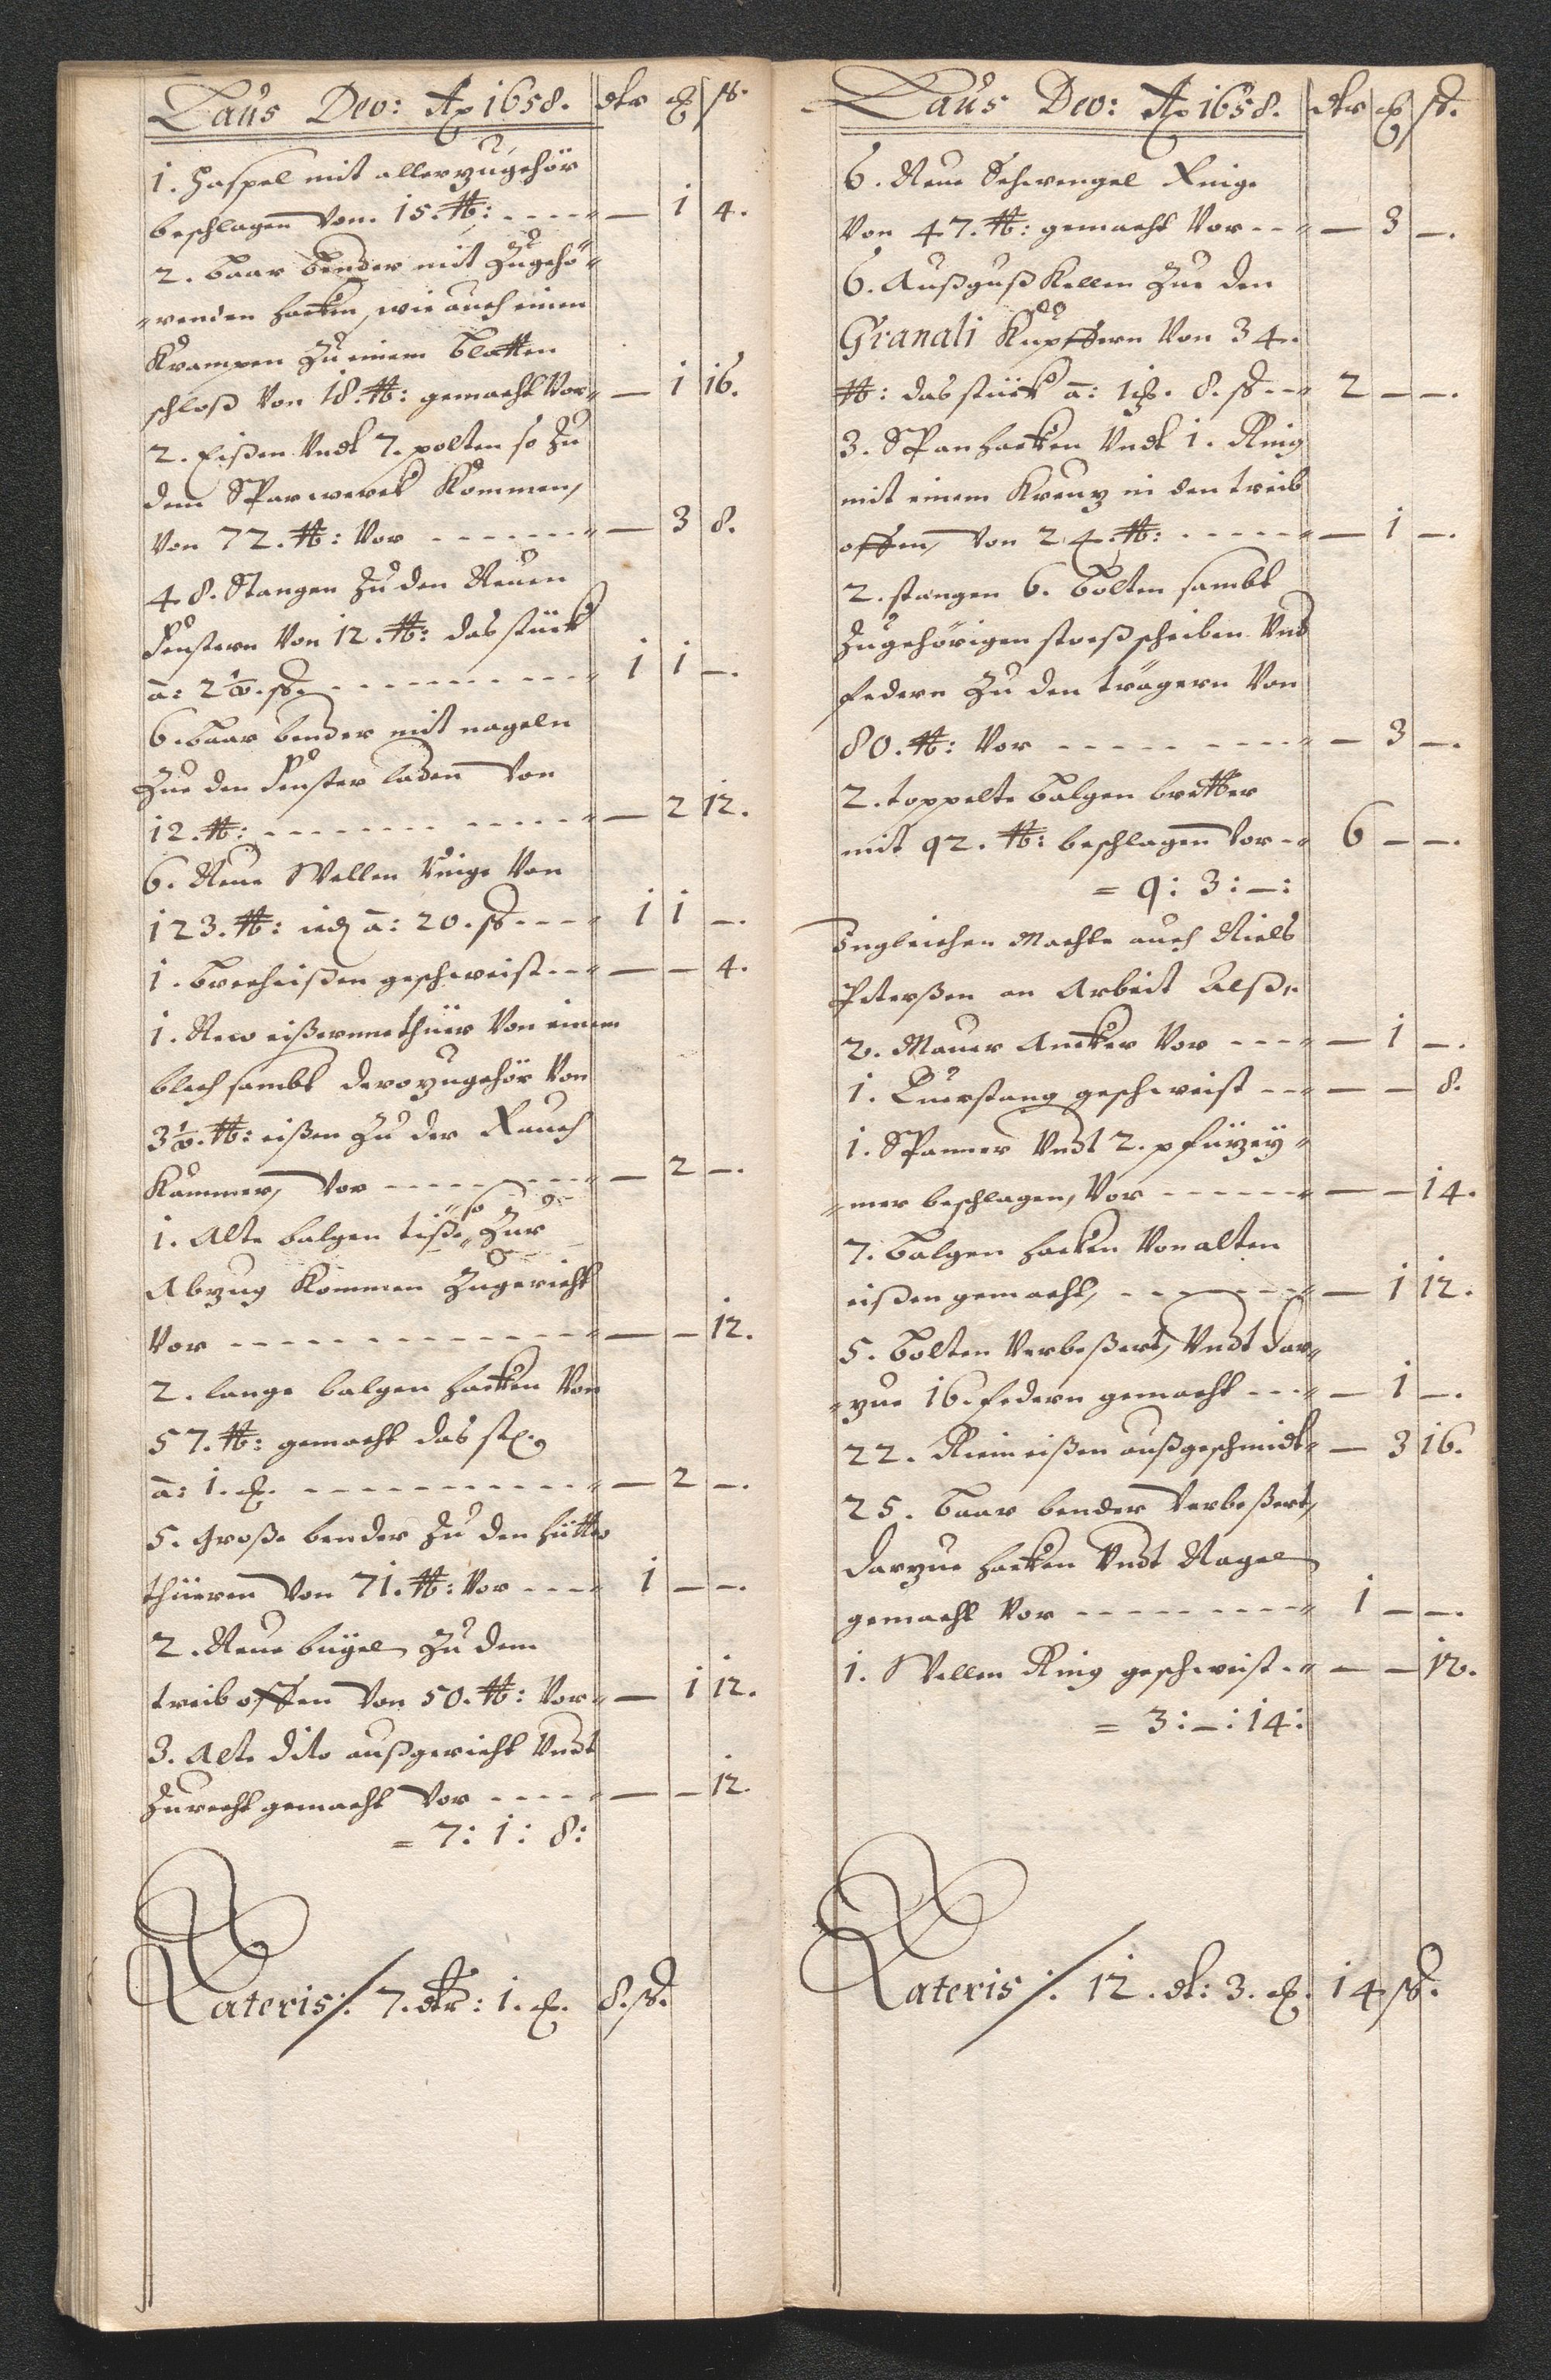 Laus Deo: Aõ 1658. dlr ꝗ ß.
1. Haspel mit allerzugehör
beschlagen von 15. ℔: — 1 4.
2. baar bender mit Zugehö-
renden hacken, wie auch einem
Krampen Zu einem blatten
schloß Von 18. ℔: gemacht Vor — 1 16.
2. Eißen Vndt 7. polten so Zu
dem SParwerck Kommen,
Von 72. ℔: Vor — 3 8.
48. Stangen Zu den Neuen
Fenstern Von 12. ℔: das stück
à: 2½. ß. 1 1 —.
6. baar bender mit nageln
Zue den Fenster laden von
12. ℔: — 2 12.
6. Neue Wellen Ringe Von
123. ℔: ied à: 20. ß. 1 1 —.
1. brecheißen geschweist — — 4.
1. New eißernne thüer Von einem
blech sambt derozugehör Von
3½. ℔: eißen Zu der Rauch
Kammer, Vor — 2 —.
1. Alte balgen tiße, so Zur
Abzug Kommen Zugericht
Vor — — 12.
2. lange balgen hacken Von
57. ℔: gemacht das st.
à: 1. ꝗ. — 2 —.
5. große bender Zu den hütten
thüeren Von 71. ℔: Vor 1 — —.
2. Neue bügel Zu dem
treib offen Von 50. ℔: Vor — 1 12.
3. Alte dito außgericht Vndt
Zurecht gemacht Vor — — 12.
= 7: 1: 8:
Lateris /: 7. dlr: 1. ꝗ. 8. ß.
Laus Deo: Aõ 1658. dlr ꝗ ß.
6. Neue Schwengel Ringe
Von 47. ℔: gemacht Vor — 3 —.
6. Außguß Kellen Zue den
Granali Kupffern Von 34.
℔: das stück à: 1 ꝗ. 8. ß. 2 — —.
3. SPanhacken Vndt 1. Ring
mit einem Kreuz in den treib
offen, Von 24. ℔: — 1 —.
2. stangen 6. bolten sambt
Zugehörigen stoeßscheiben Vnd
federn Zu den trägern Von
80. ℔: Vor — 3 —.
2. toppelte balgen bretter
mit 92. ℔: beschlagen Vor 6 — —.
= 9: 3: —:
Ingleichen Machte auch Niels
Peterßen an Arbeit Alß,
2. Mauer Ancker Vor — 1 —.
1. Querstang geschweist — — 8.
1. SPanner Vndt 2. pfüzey-
mer beschlagen, Vor — — 14.
7. balgen hacken Von alten
eißen gemacht, — 1 12.
5. bolten Verbeßert, Vndt dar-
zue 16. federn gemacht — 1 —.
22. Rieineißen außgeschmidt — 3 16.
25. baar bender Verbeßert,
darzue hacken Vndt Nagel
gemacht Vor 1 — —.
1. Wellen Ring geschweist — — 12.
= 3: —: 14:
Lateris /: 12. dl: 3. ꝗ. 14 ß.